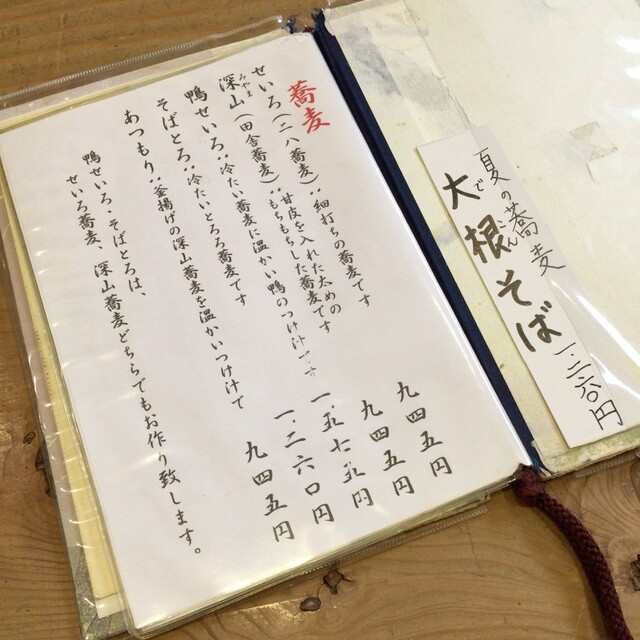 蕎麦
せいろ（二八蕎麦）：細打ちの蕎麦です 九四五円
みやま
深山（田舎蕎麦）：甘皮を入れた太めの
もちもちした蕎麦です 九四五円
鴨せいろ：冷たい蕎麦に温かい鴨のつけ汁です 一、五七五円
そばとろ：冷たいとろろ蕎麦です 一、二六〇円
あつもり：釜揚げの深山蕎麦を温かいつけ汁で 九四五円
鴨せいろ・そばとろは、
せいろ蕎麦、深山蕎麦どちらでもお作り致します。
夏の蕎麦
大根そば 一、二六〇円